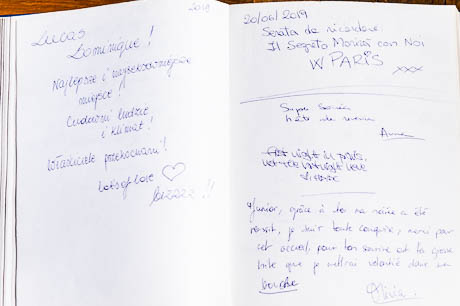 2019
Lucas
Dominique!
Najlepsze i najseksowniejsze
miejsce!
Cudowni ludzie
i klimat!
Właściciele przekochani!
Lots of love
!!
20/06/2019
Serata da ricordare
Il Segreto Morirà con Noi
W PARIS
xxx
Super Soirée
hate de revenir
Anne
night in paris.
last night here
Junior, grâce à toi ma soirée a été
je suis toute conquise, merci pour
cet accueil, pour ton sourire et ta grosse
bite que je mettrai volontié dans ma
bouche